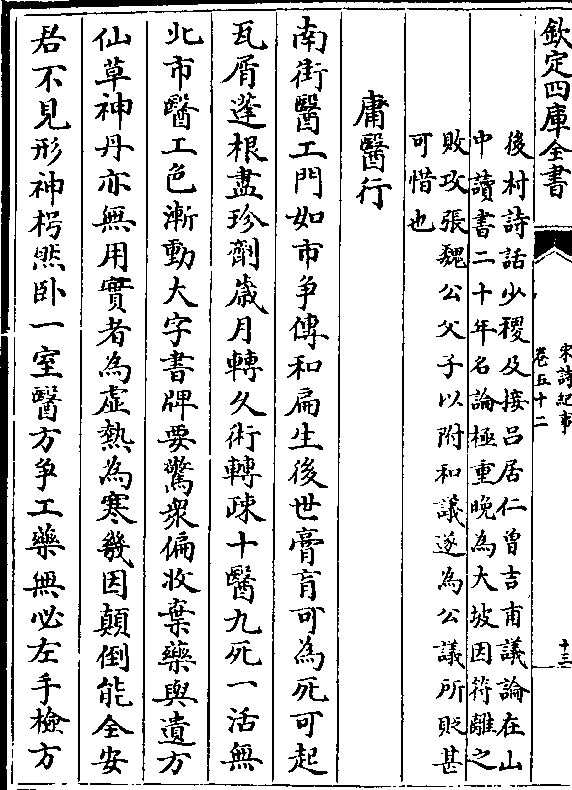 欽定四庫全書
宋詩紀事
卷五十二
十三
後村詩話少稷及接呂居仁曾吉甫議論在山
中讀書二十年名論極重晚為大坡因符離之
敗攻張魏公父子以附和議遂為公議所貶甚
可惜也
庸醫行
南街醫工門如市爭傳和扁生後世膏肓可為死可起
瓦屑蓬根盡珍劑歲月轉久術轉疎十醫九死一活無
北市醫工色漸動大字書牌要驚衆偏收棄藥與遺方
仙草神丹亦無用實者為虛熱為寒幾因顛倒能全安
君不見形神枵然臥一室醫方爭工藥無必左手檢方